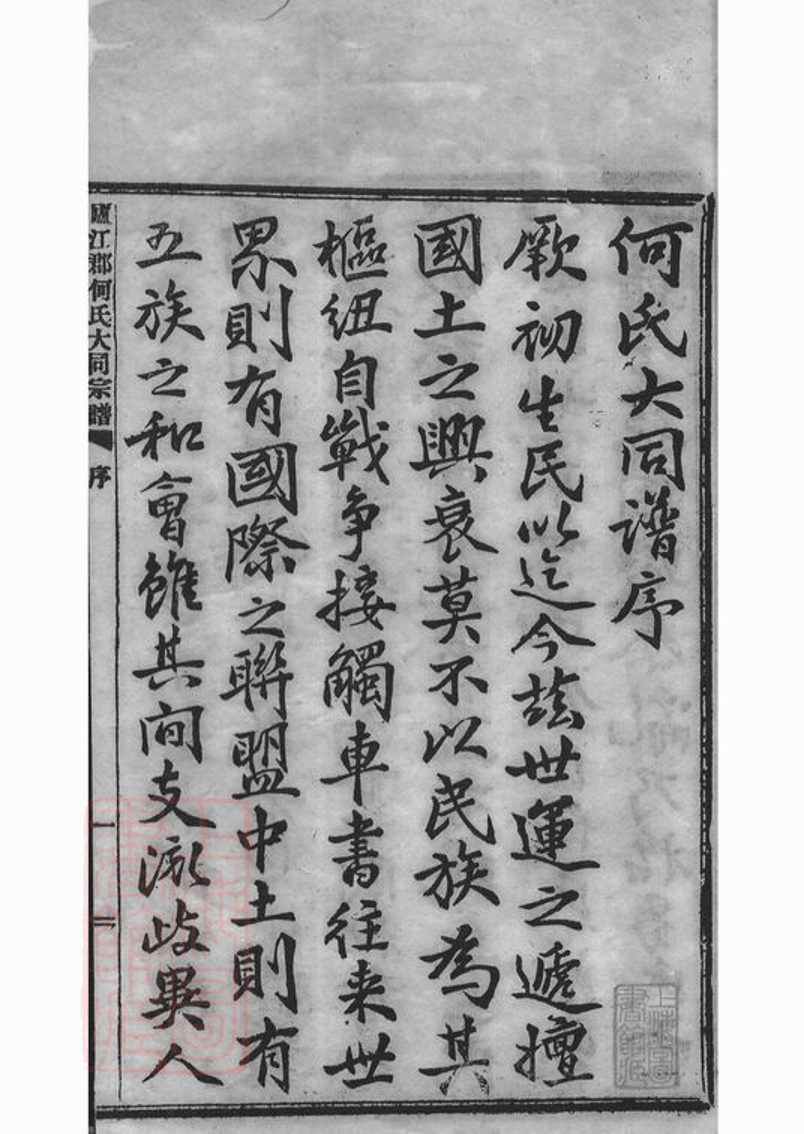 何氏大同譜序
厥初生民以迄今茲世運之遞擅
國土之興衰莫不以民族為其
樞紐自戰爭接觸車書往来世
界則有國際之聯盟中土則有
五族之和會雖其间支派歧異人
廬江郡何氏大同宗譜 序 一 二
上海圖書館藏